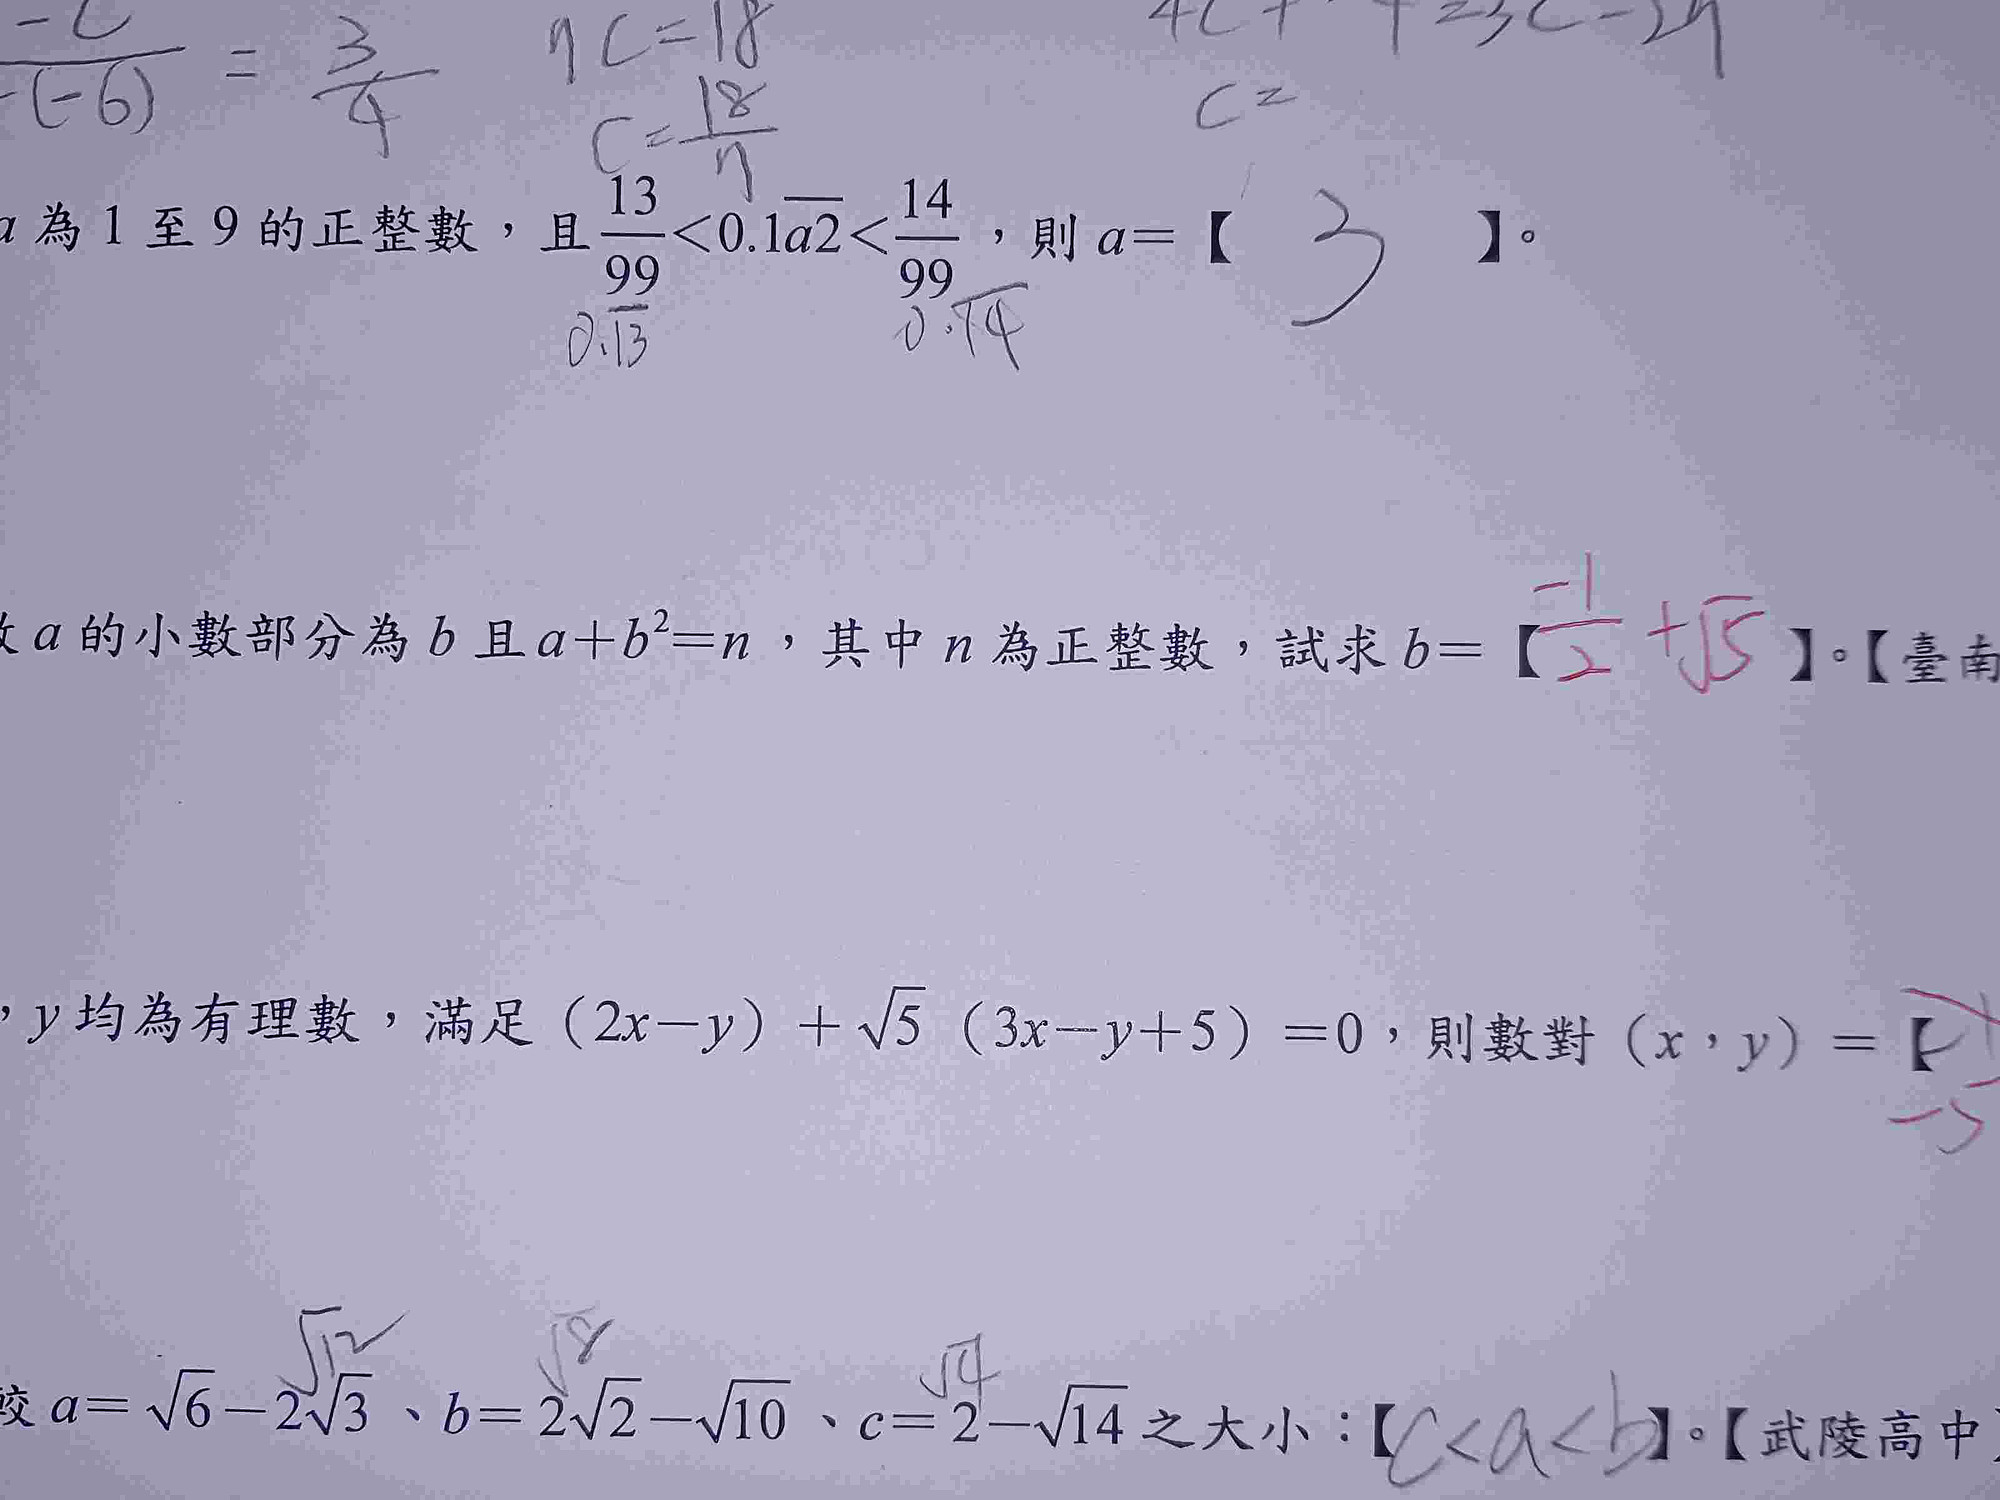 -(-6) = 3/4
nc=18
c=18/n
c=
a 為 1 至 9 的正整數，且 13/99<0.1a̅2̅<14/99，則 a=【 3 】。
0.1̅3̅ 0.1̅4̅
a 的小數部分為 b 且 a+b²=n，其中 n 為正整數，試求 b=【 -1/2 +√5 】。【臺南
，y 均為有理數，滿足（2x−y）+√5（3x−y+5）=0，則數對（x，y）=【
-5
√12 √8 √4
較 a=√6−2√3、b=2√2−√10、c=2−√14 之大小：【c<a<b】。【武陵高中】